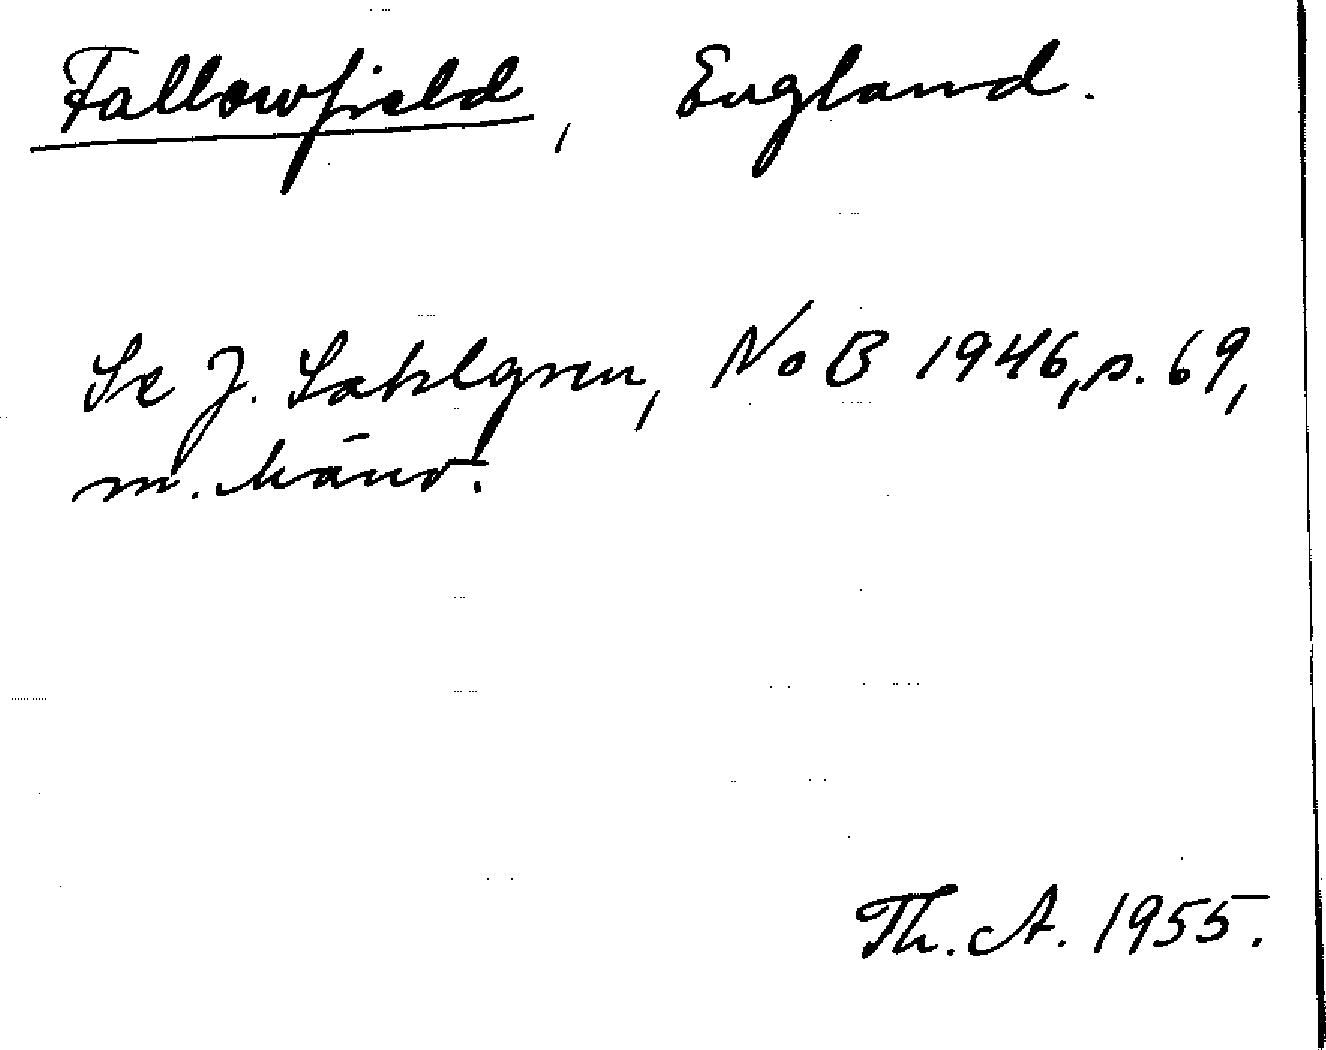 Fallowfield, England.
Se J. Sahlgren, NoB 1946, s. 69,
m. hänv.
Th. A. 1955.